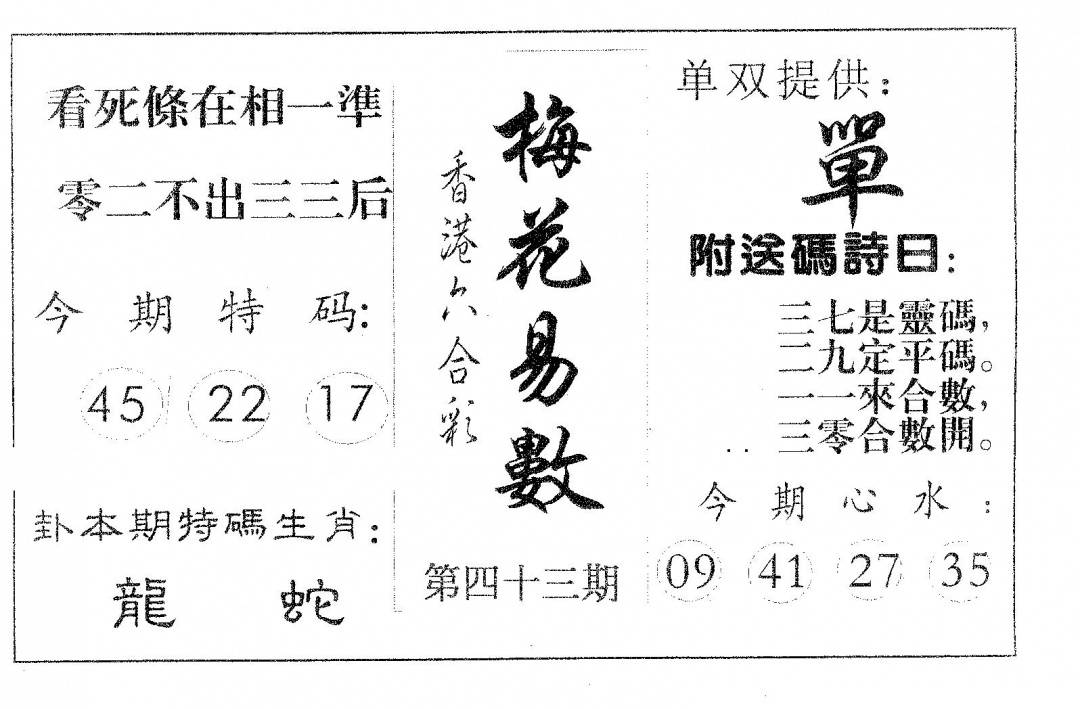 看死條在相一準
零二不出三三后
今期特码:
45 22 17
卦本期特碼生肖:
龍 蛇
梅花易數
香港六合彩
第四十三期
单双提供:
單
附送碼詩曰:
三七是靈碼,
二九定平碼。
一一來合數,
三零合數開。
今期心水:
09 41 27 35